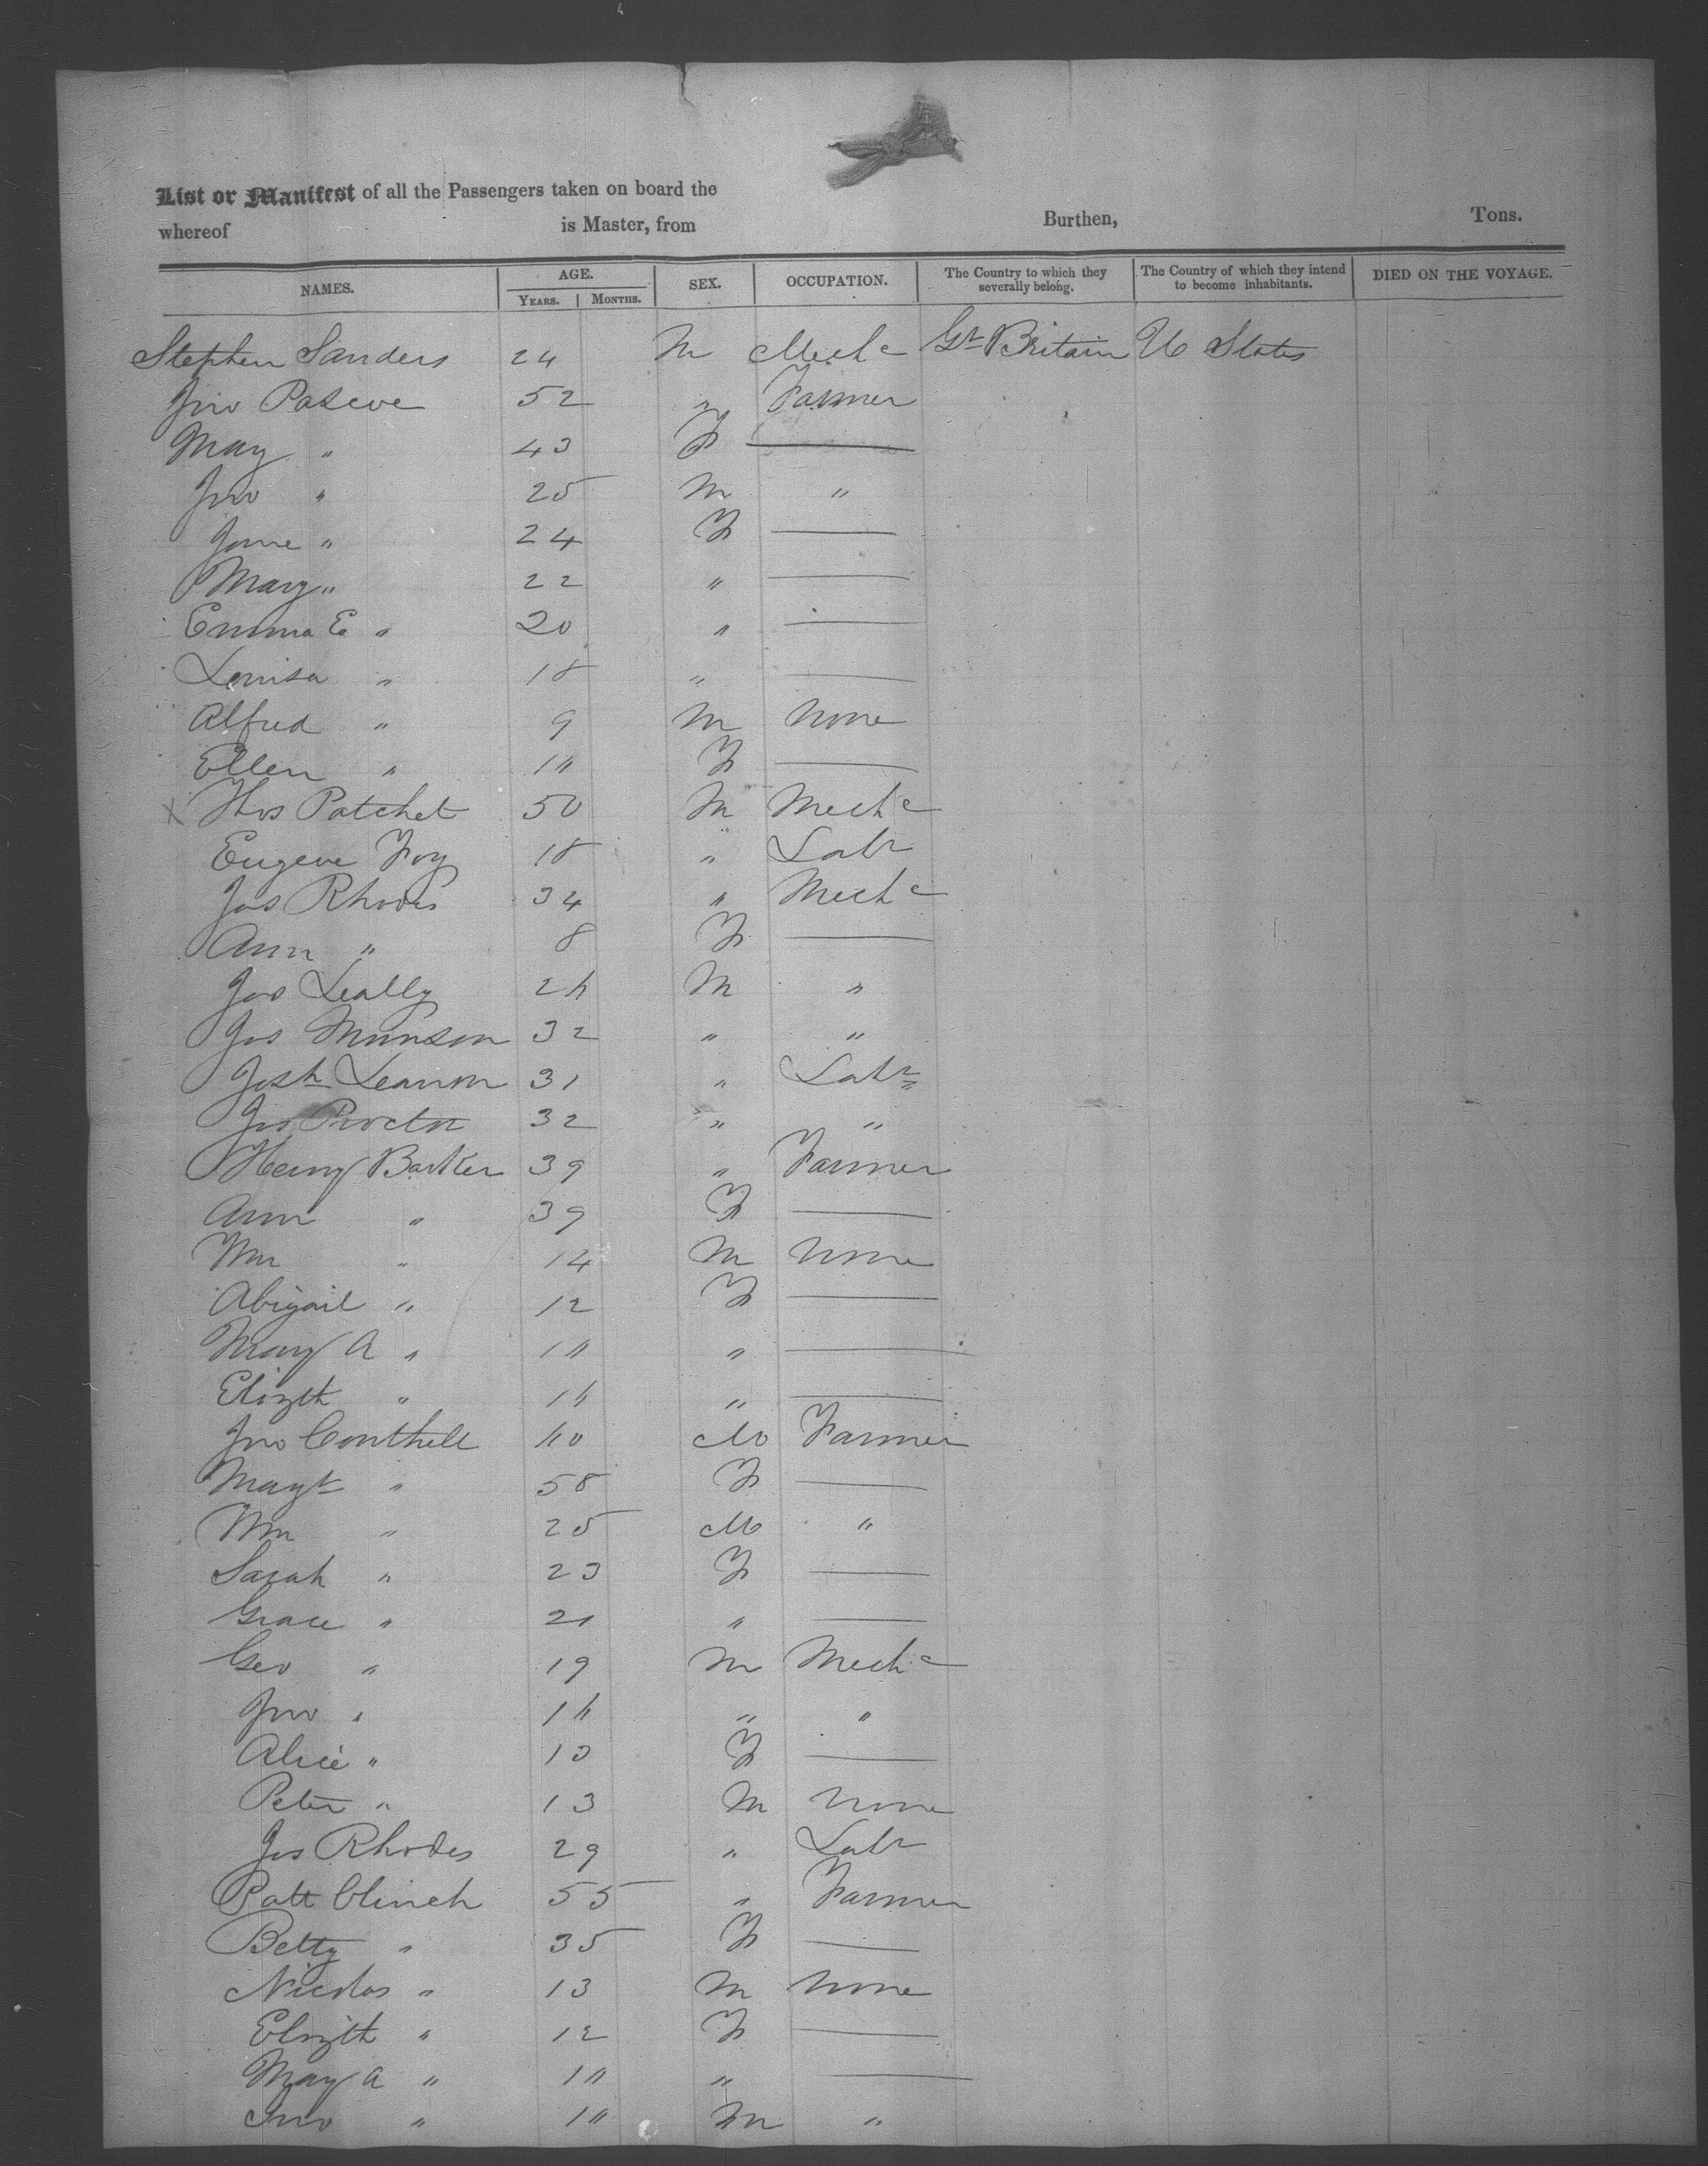 List or Manifest of all the Passengers taken on board the
whereof is Master, from Burthen, Tons.
NAMES. AGE. YEARS. MONTHS. SEX. OCCUPATION. The Country to which they severally belong. The Country of which they intend to become inhabitants. DIED ON THE VOYAGE.
Stephen Sanders 24 M Mechc Gt Britain U States
Jno Pascoe 52 " Farmer
Mary " 43 F —
Jno " 25 M "
Jane " 24 F —
Mary " 22 " —
Emma E " 20 " —
Louisa " 18 " —
Alfred " 9 M None
Ellen " 11 F —
X Thos Patchet 50 M Mechc
Eugene Foy 18 " Labr
Jas Rhodes 34 " Mechc
Ann " 8 F —
Jas Leally 26 M "
Jos Munson 32 " "
Josh Leanon 31 " Labr
Jno Proctor 32 " "
Henry Barker 39 " Farmer
Ann " 39 F —
Wm " 14 M None
Abigail " 12 F —
Mary A " 11 " —
Elizth " 16 " —
Jno Conthell 60 M Farmer
Magt " 58 F —
Wm " 25 M "
Sarah " 23 F —
Grace " 21 " —
Geo " 19 M Mechc
Jno " 16 " "
Alice " 13 F —
Peter " 13 M None
Jos Rhodes 29 " Labr
Patt Clinch 55 " Farmer
Betty " 35 F —
Nicolas " 13 M None
Elizth " 12 F —
Mary A " 11 " —
Jno " 11 M "